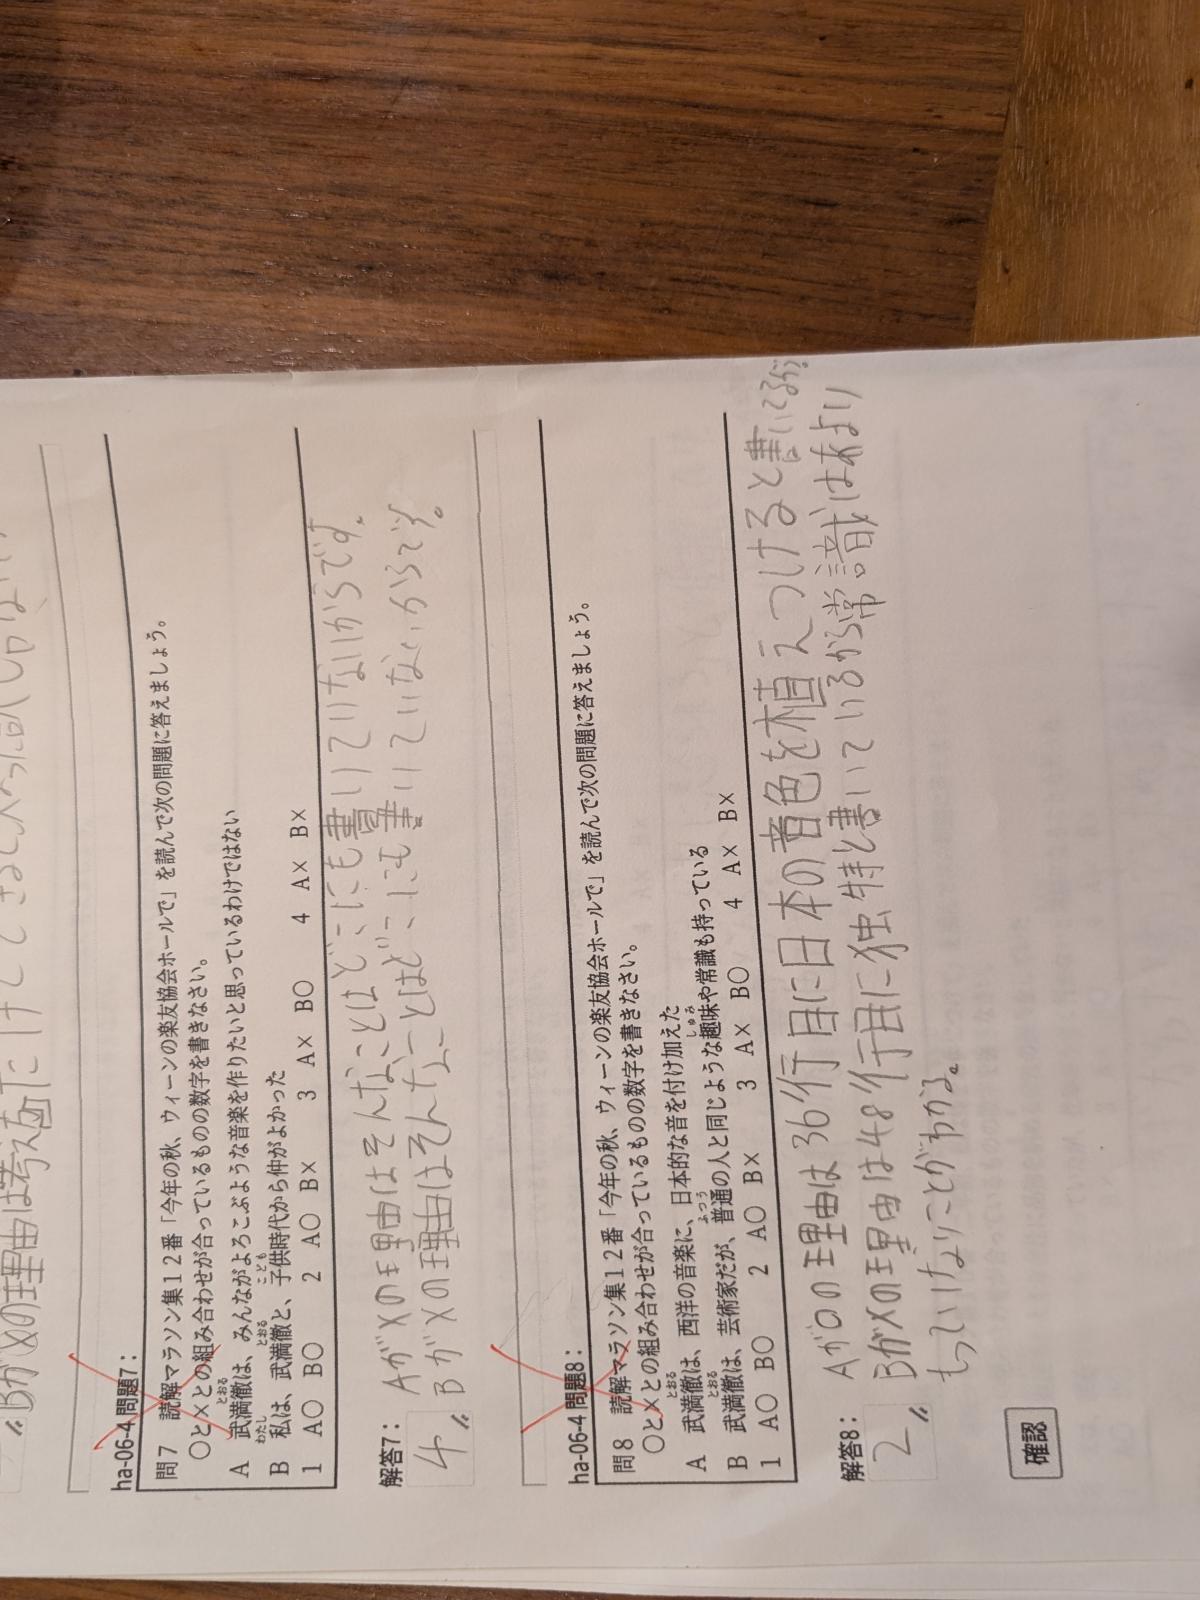 Bが×の理由は考え
ha-06-4 問題7：
問７　読解マラソン集１２番「今年の秋、ウィーンの楽友協会ホールで」を読んで次の問題に答えましょう。
○と×との組み合わせが合っているものの数字を書きなさい。
A　武満徹は、みんながよろこぶような音楽を作りたいと思っているわけではない
B　私は、武満徹と、子供時代から仲がよかった
1　A○　B○　2　A○　B×　3　A×　B○　4　A×　B×
解答7：
4
Aが×の理由はそんなことはどこにも書いていないからです。
Bが×の理由はそんなことはどこにも書いていないからです。
ha-06-4 問題8：
問８　読解マラソン集１２番「今年の秋、ウィーンの楽友協会ホールで」を読んで次の問題に答えましょう。
○と×との組み合わせが合っているものの数字を書きなさい。
A　武満徹は、西洋の音楽に、日本的な音を付け加えた
B　武満徹は、芸術家だが、普通の人と同じような趣味や常識も持っている
1　A○　B○　2　A○　B×　3　A×　B○　4　A×　B×
解答8：
2
Aが○の理由は36行目に日本の音色を植えつけると書いてるから
Bが×の理由は48行目に独特と書いているから常識はあまり
もっていけないことがわかる。
確認